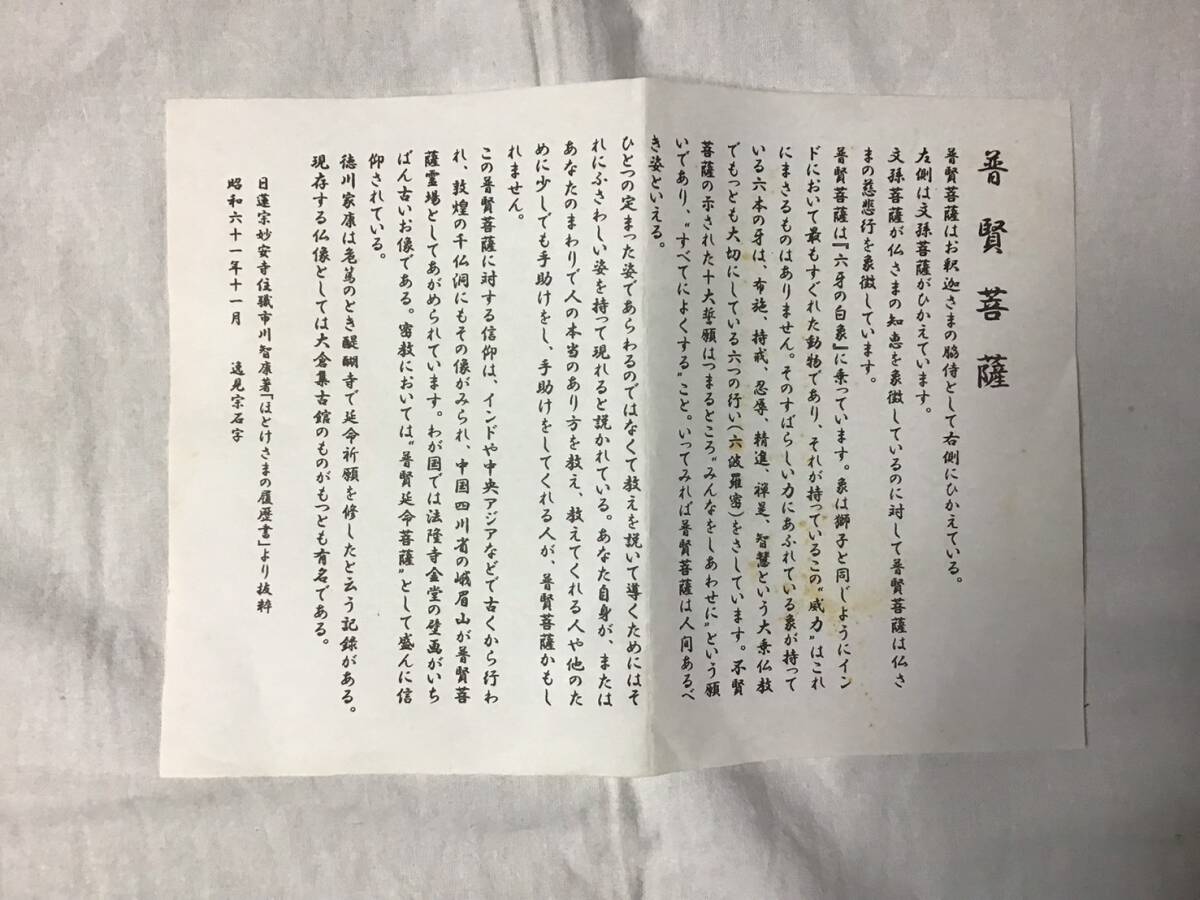 普賢菩薩
普賢菩薩はお釈迦さまの脇侍として右側にひかえている。
左側は文孫菩薩がひかえています。
文孫菩薩が仏さまの知恵を象徴しているのに対して普賢菩薩は仏さ
まの慈悲行を象徴しています。
普賢菩薩は『六牙の白象』に乗っています。象は獅子と同じようにイン
ドにおいて最もすぐれた動物であり、それが持っているこの"威力"はこれ
にまさるものはありません。そのすばらしい力にあふれている象が持って
いる六本の牙は、布施、持戒、忍辱、精進、禅定、智慧という大乗仏教
でもっとも大切にしている六つの行い(六波羅密)をさしています。不賢
菩薩の示された十大誓願はつまるところ"みんなをしあわせに"という願
いであり、"すべてによくする"こと。いってみれば普賢菩薩は人間あるべ
き姿といえる。
ひとつの定まった姿であらわるのではなくて教えを説いて導くためにはそ
れにふさわしい姿を持って現れると説かれている。あなた自身が、または
あなたのまわりで人の本当のあり方を教え、教えてくれる人や他のた
めに少しでも手助けをし、手助けをしてくれる人が、普賢菩薩かもし
れません。
この普賢菩薩に対する信仰は、インドや中央アジアなどで古くから行わ
れ、敦煌の千仏洞にもその像がみられ、中国四川省の峨眉山が普賢菩
薩霊場としてあがめられています。わが国では法隆寺金堂の壁画がいち
ばん古いお像である。密教においては"普賢延命菩薩"として盛んに信
仰されている。
徳川家康は危篤のとき醍醐寺で延命祈願を修したと云う記録がある。
現存する仏像としては大倉集古館のものがもっとも有名である。
日蓮宗妙安寺住職市川智康著「ほとけさまの履歴書」より抜粋
昭和六十一年十一月 遠見宗石字